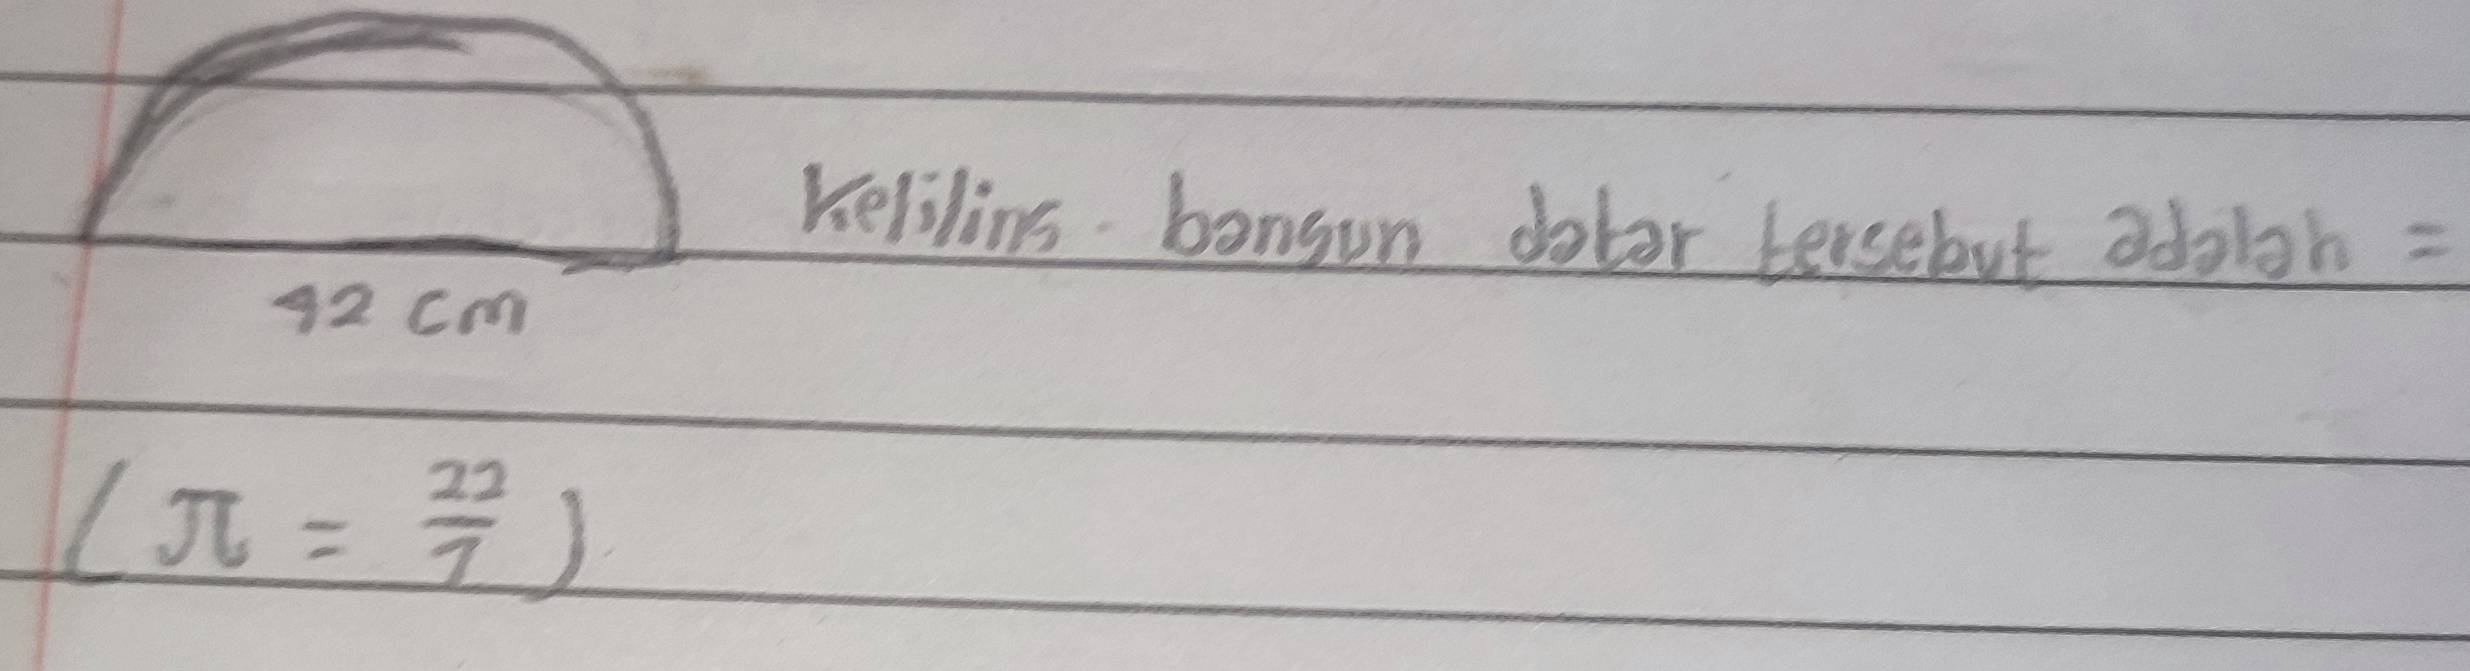 Keliling bangun datar tersebut adalah =
42 cm
(π = 22/7)